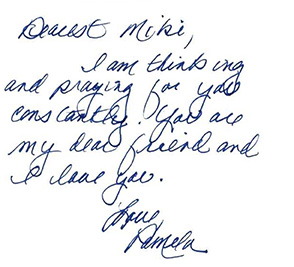 Dearest Miki,
I am thinking
and praying for you
constantly. You are
my dear friend and
I love you.
Love,
Pamela